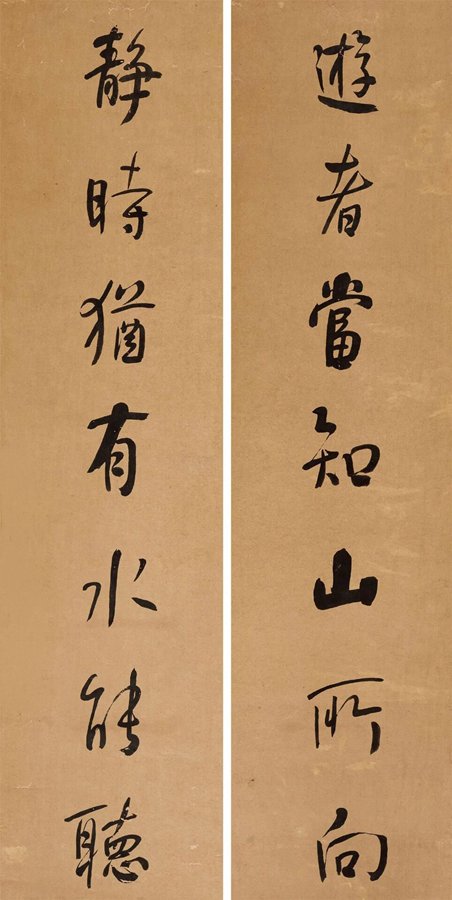 遊者當知山所向
静時猶有水能聽